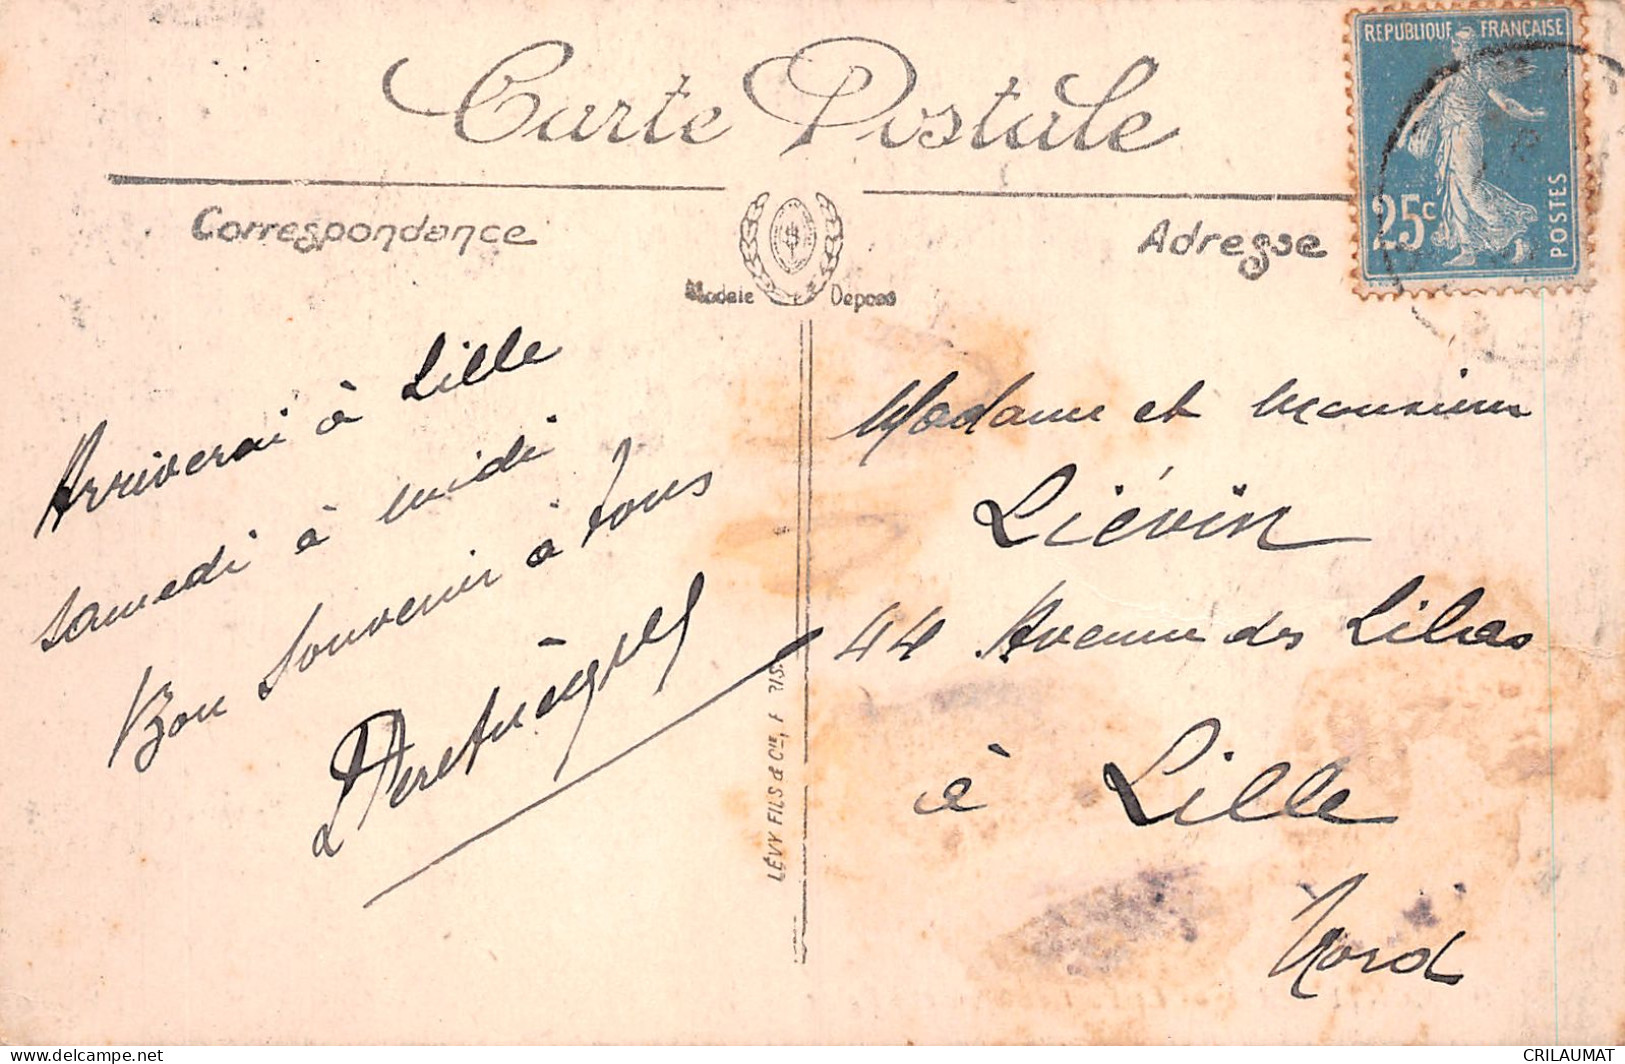 Carte Postale
REPUBLIQUE FRANÇAISE
25c
POSTES
Correspondance
Adresse
Modele Depose
Arriverai à Lille
samedi à midi
Bon souvenir à tous
LÉVY FILS & Cie, PARIS
Madame et Monsieur
Liévin
44 Avenue des Lilas
à Lille
Nord
CRILAUMAT